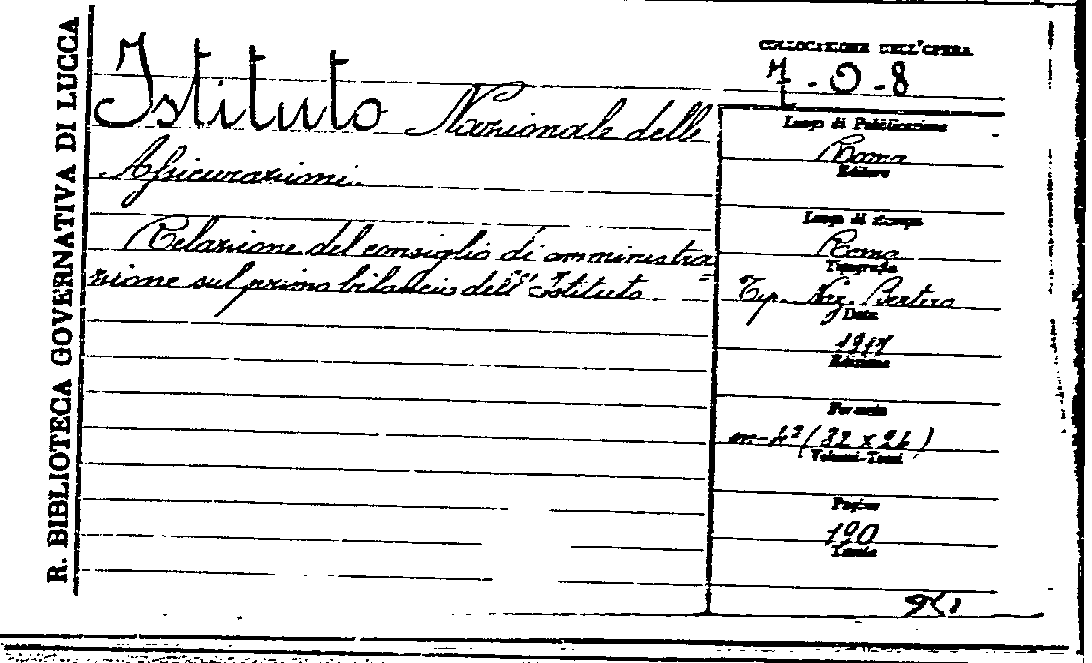 R. BIBLIOTECA GOVERNATIVA DI LUCCA
Istituto Nazionale delle
Assicurazioni.
Relazione del consiglio di amministra=
zione sul primo bilancio dell'Istituto
COLLOCAZIONE DELL'OPERA
- O - 8
Luogo di Pubblicazione
Roma
Editore
Luogo di stampa
Roma
Tipografia
Tip. Naz. Bertero
Data
Edizione
Formato
(32 x 26)
Volumi-Tomi
Pagine
190
Tavole